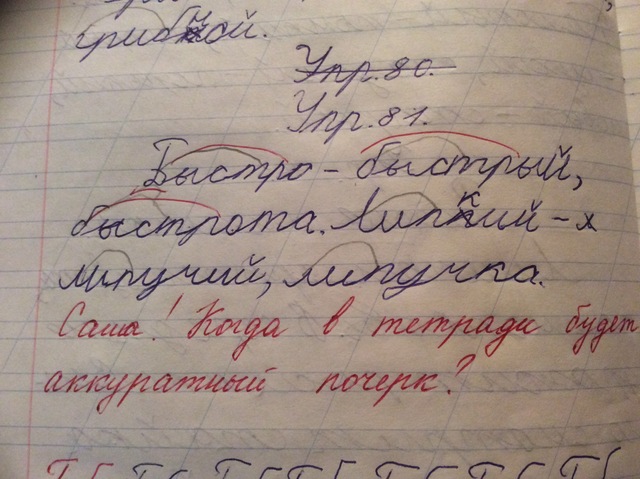 грибной.
Упр.80.
Упр.81.
Быстро - быстрый,
быстрота. Липкий - х
липучий, липучка.
Саша! Когда в тетради будет
аккуратный почерк?